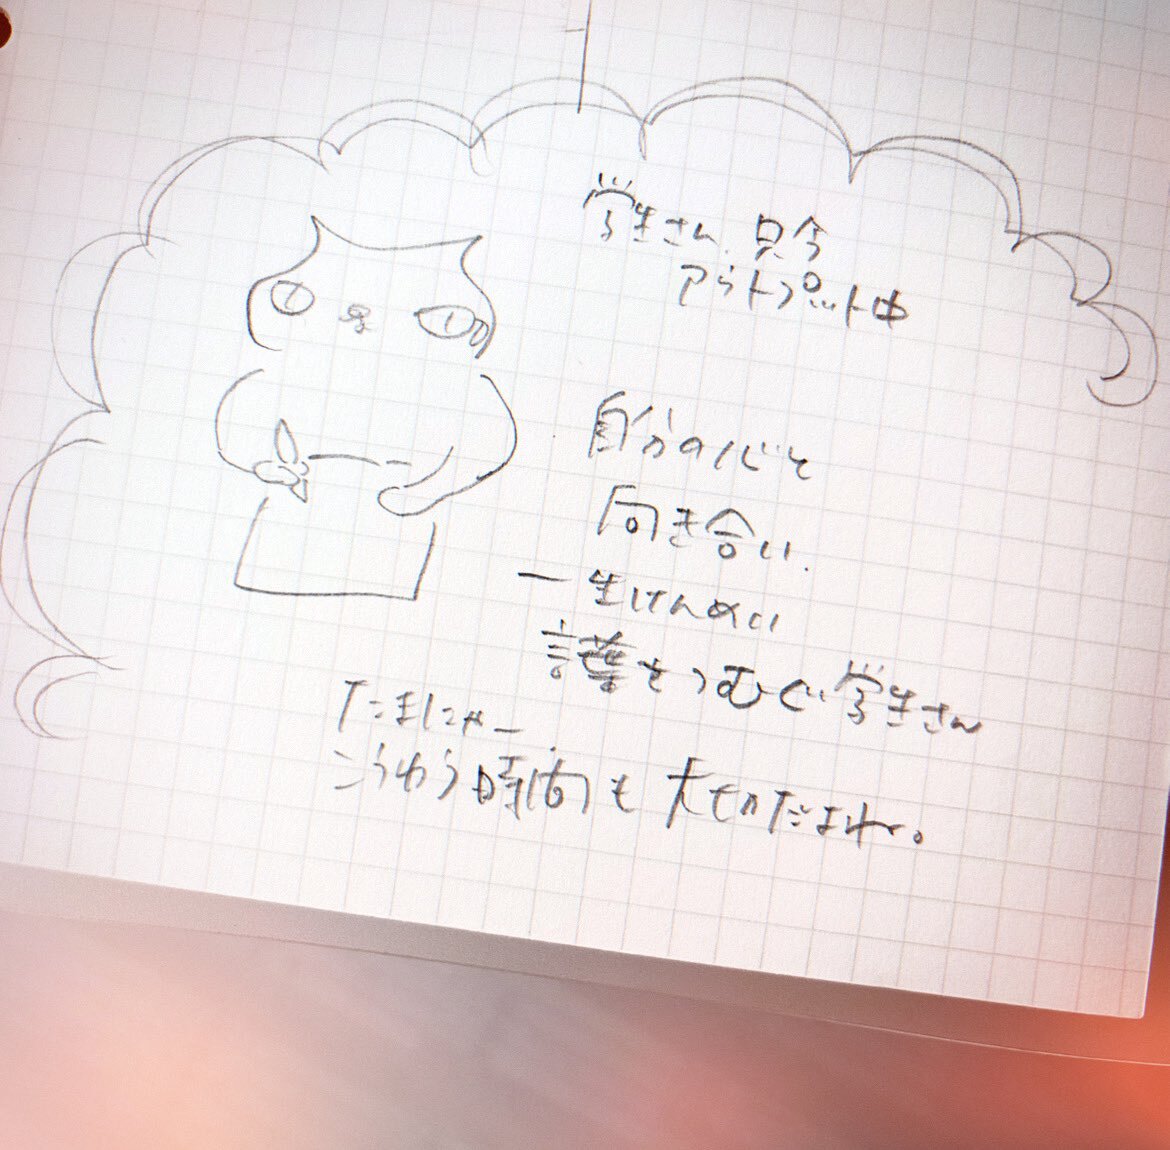 学生さん、只今
アウトプット中
自分の心と
向き合い、
一生けんめい
言葉をつむぐ学生さん
たまにゃー
こうゆう時間も大切だよね。